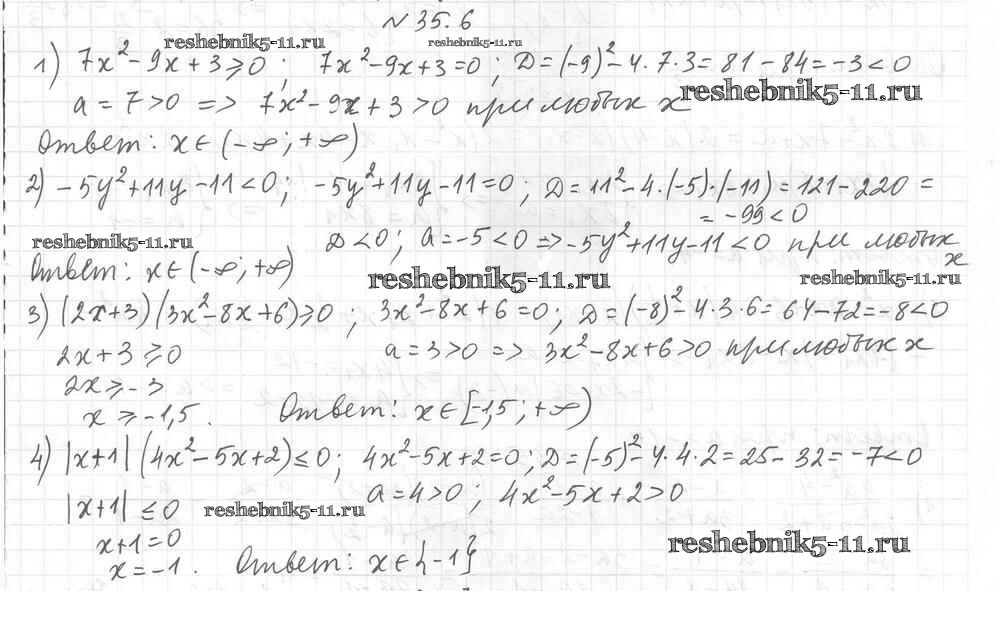 № 35.6
reshebnik5-11.ru reshebnik5-11.ru
1) 7x² - 9x + 3 ⩾ 0 ; 7x² - 9x + 3 = 0 ; D = (-9)² - 4 · 7 · 3 = 81 - 84 = -3 < 0
a = 7 > 0 => 7x² - 9x + 3 > 0 при любых x
reshebnik5-11.ru
Ответ: x ∈ (-∞ ; +∞)
2) -5y² + 11y - 11 < 0 ; -5y² + 11y - 11 = 0 ; D = 11² - 4 · (-5) · (-11) = 121 - 220 =
= -99 < 0
reshebnik5-11.ru D < 0 ; a = -5 < 0 => -5y² + 11y - 11 < 0 при любых x
Ответ: x ∈ (-∞ ; +∞) reshebnik5-11.ru reshebnik5-11.ru
3) (2x+3)(3x² - 8x + 6) ⩾ 0 ; 3x² - 8x + 6 = 0 ; D = (-8)² - 4 · 3 · 6 = 64 - 72 = -8 < 0
2x + 3 ⩾ 0 a = 3 > 0 => 3x² - 8x + 6 > 0 при любых x
2x ⩾ -3
x ⩾ -1,5 . Ответ: x ∈ [-1,5 ; +∞)
4) |x+1| (4x² - 5x + 2) ≤ 0 ; 4x² - 5x + 2 = 0 ; D = (-5)² - 4 · 4 · 2 = 25 - 32 = -7 < 0
a = 4 > 0 ; 4x² - 5x + 2 > 0
|x+1| ≤ 0 reshebnik5-11.ru
x + 1 = 0
reshebnik5-11.ru
x = -1 . Ответ: x ∈ {-1}